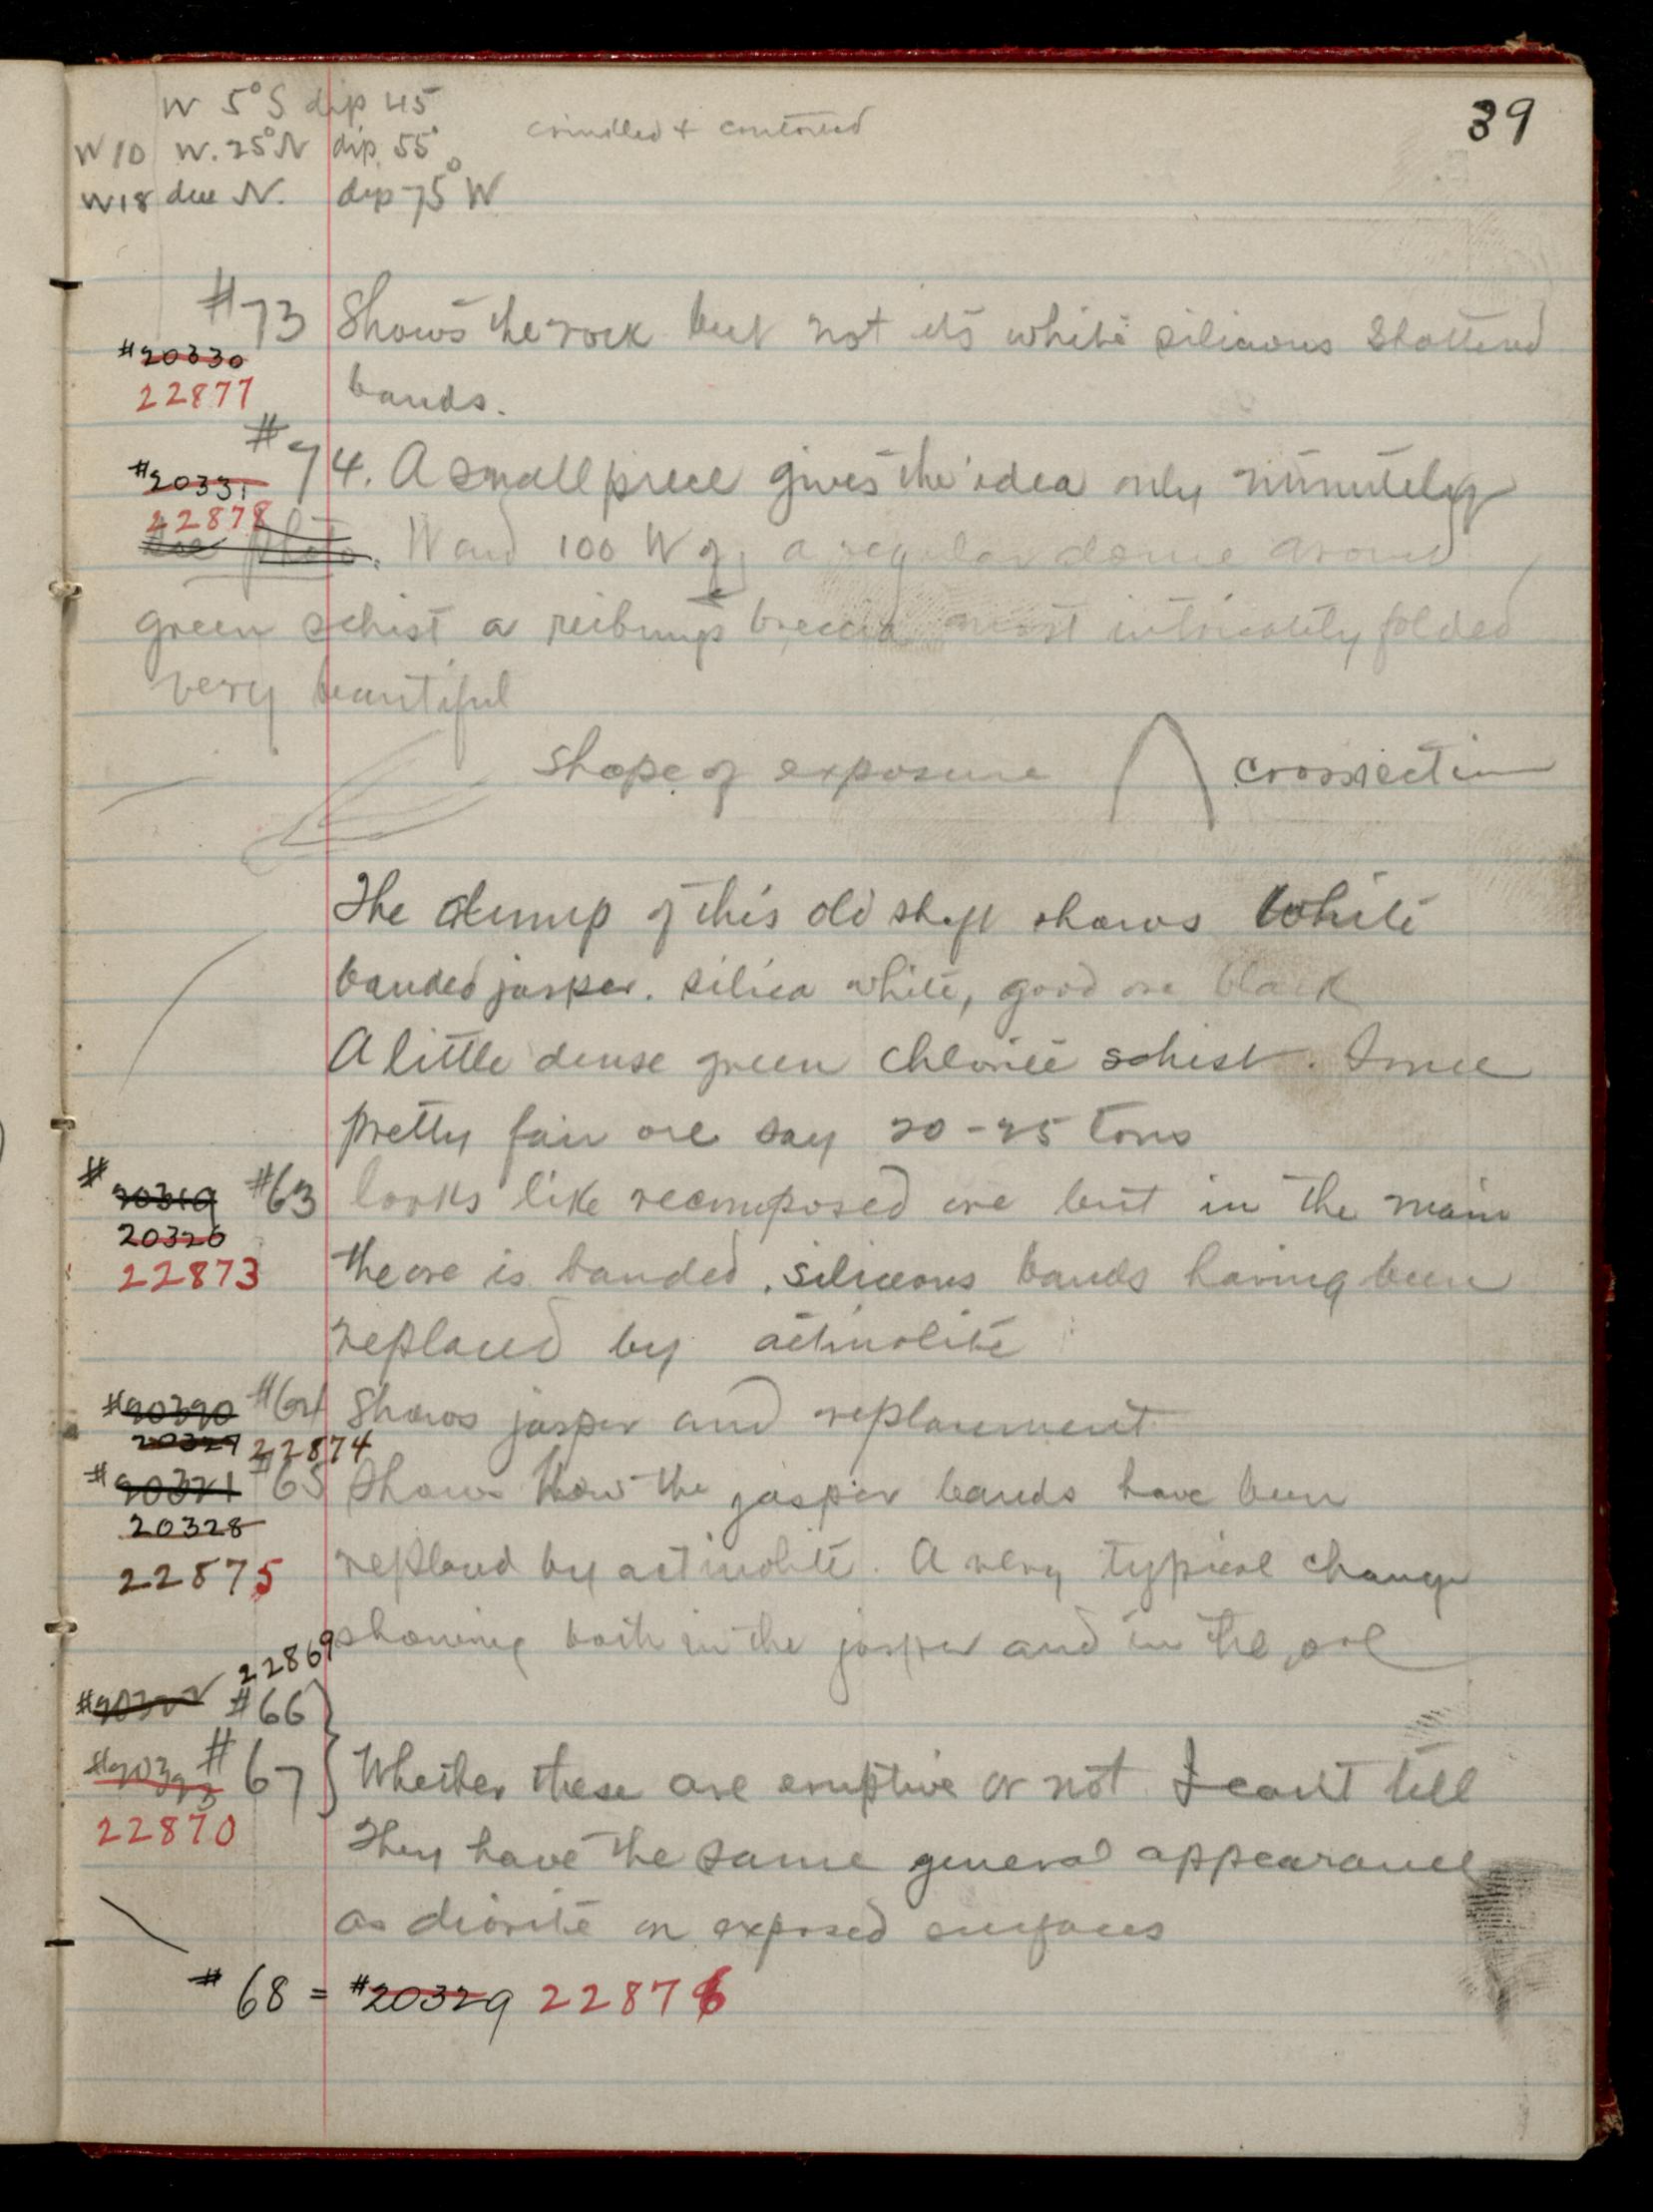 39
W 5° S dip 45
crinkled + contorted
W 10 W. 25° N dip 55°
W 18 due N. dip 75° W
#73 Shows the rock but not its white silicious shattered
#20330
22877 bands.
#74. A small piece gives the idea only minutely
#20331
22878
see photo. W and 100 W of a regular dome around
green schist a reibungs breccia most intricately folded
very beautiful
shape of exposure crossection
The dump of this old shaft shows white
banded jasper. silica white, good ore black
A little dense green chlorite schist. Some
pretty fair ore say 20-25 tons
#20319 #63 looks like recomposed ore but in the main
20326
22873 the ore is banded, siliceous bands having been
replaced by actinolite
#20320 #64 Shows jasper and replacement
20327 22874
#20321 #65 Shows how the jasper bands have been
20328
22875 replaced by actinolite. A very typical change
showing both in the jasper and in the ore
22869
#20322 #66
#20323 #67 Whether these are eruptive or not I can't tell
22870 They have the same general appearance
as diorite on exposed surfaces
#68 = #20329 22876